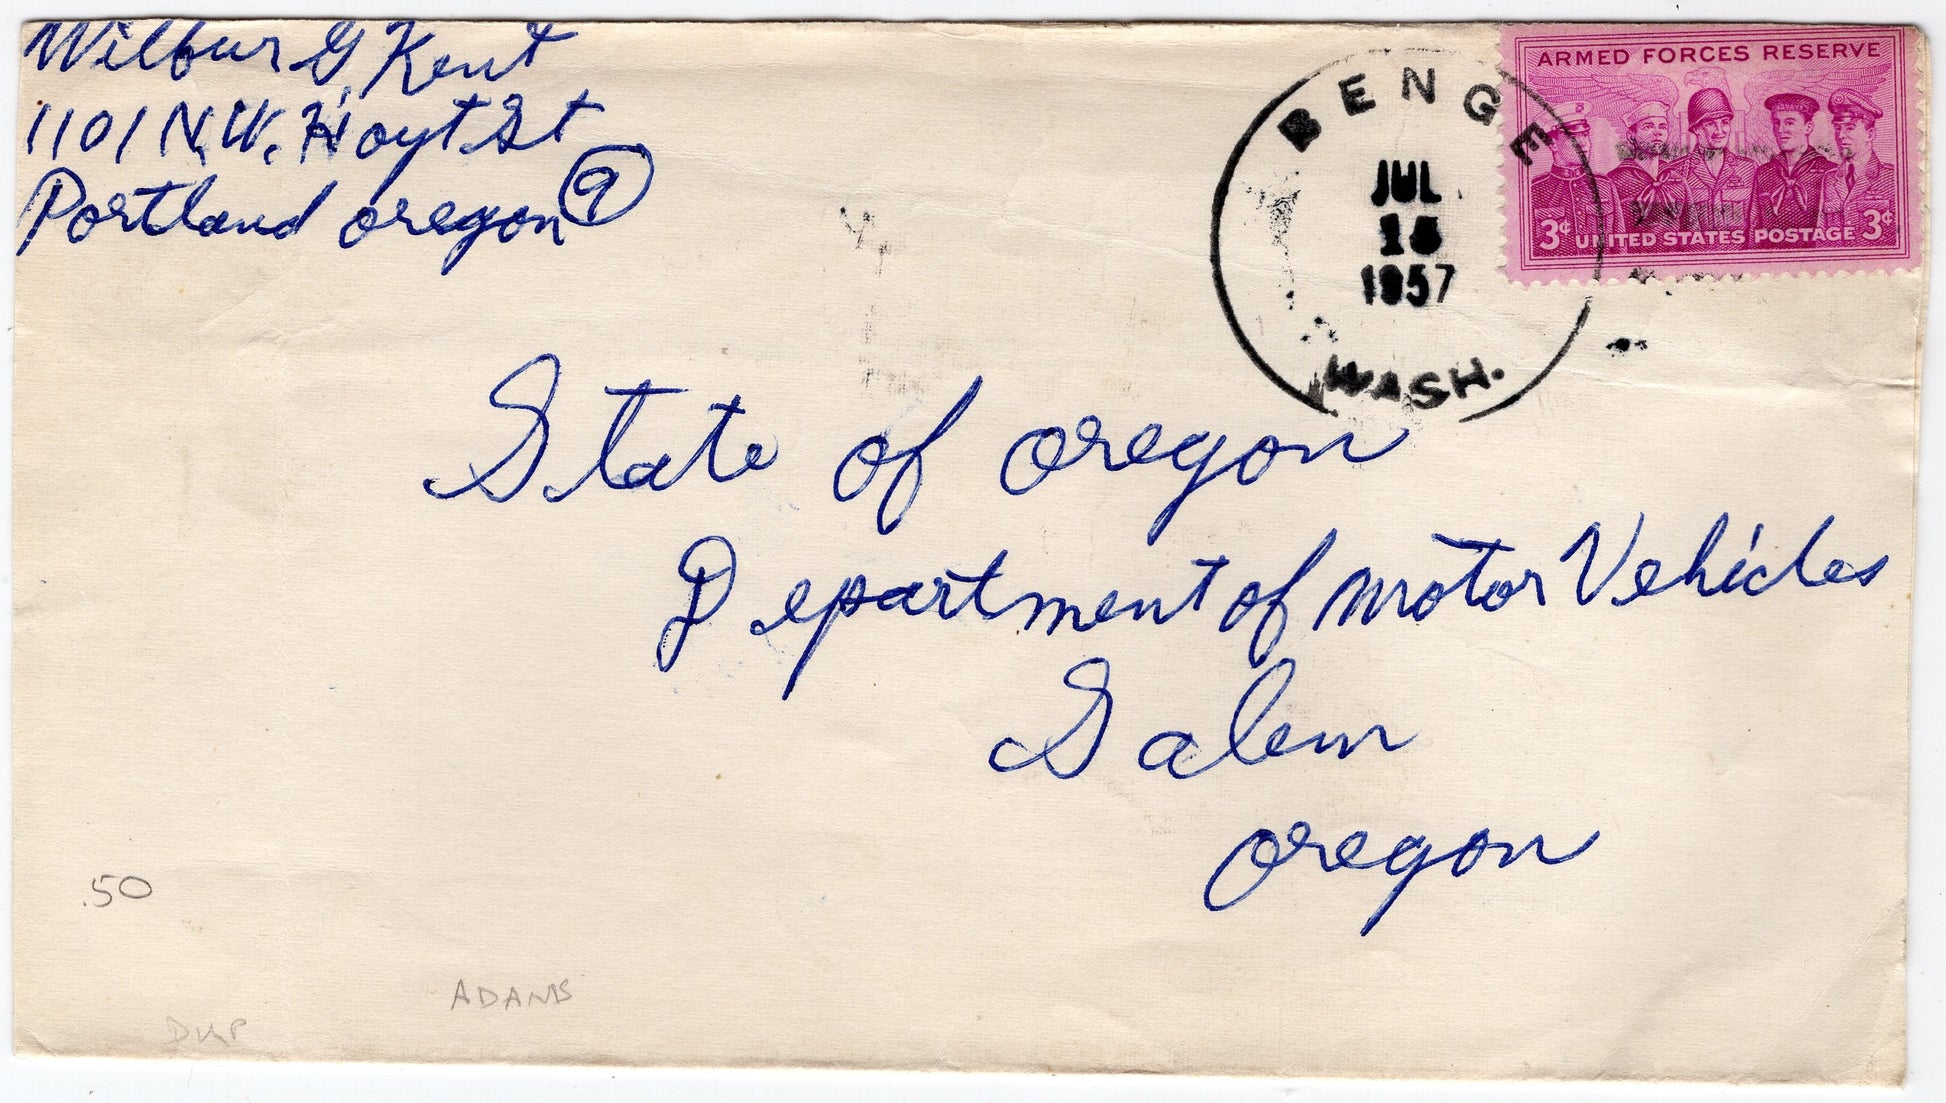 Wilbur G Kent
1101 N.W. Hoyt St
Portland oregon 9
BENGE
JUL
1957
WASH.
ARMED FORCES RESERVE
3¢ UNITED STATES POSTAGE 3¢
State of oregon
Department of motor Vehicles
Salem
oregon
.50
ADAMS